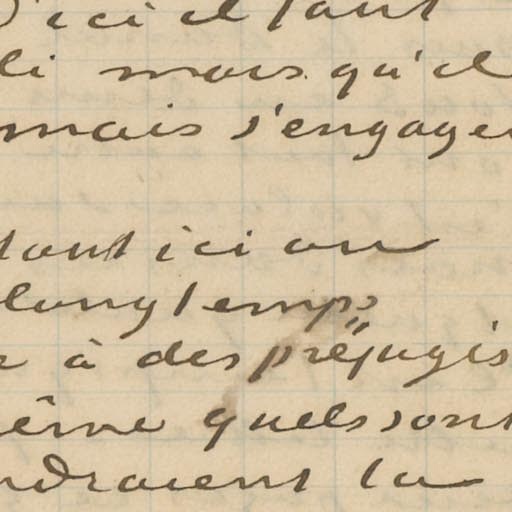 D'ici il faut
li mais qu'il
mais s'engager
tout ici on
longtemps
r à des préjugés
ême quels sont
ndraient la